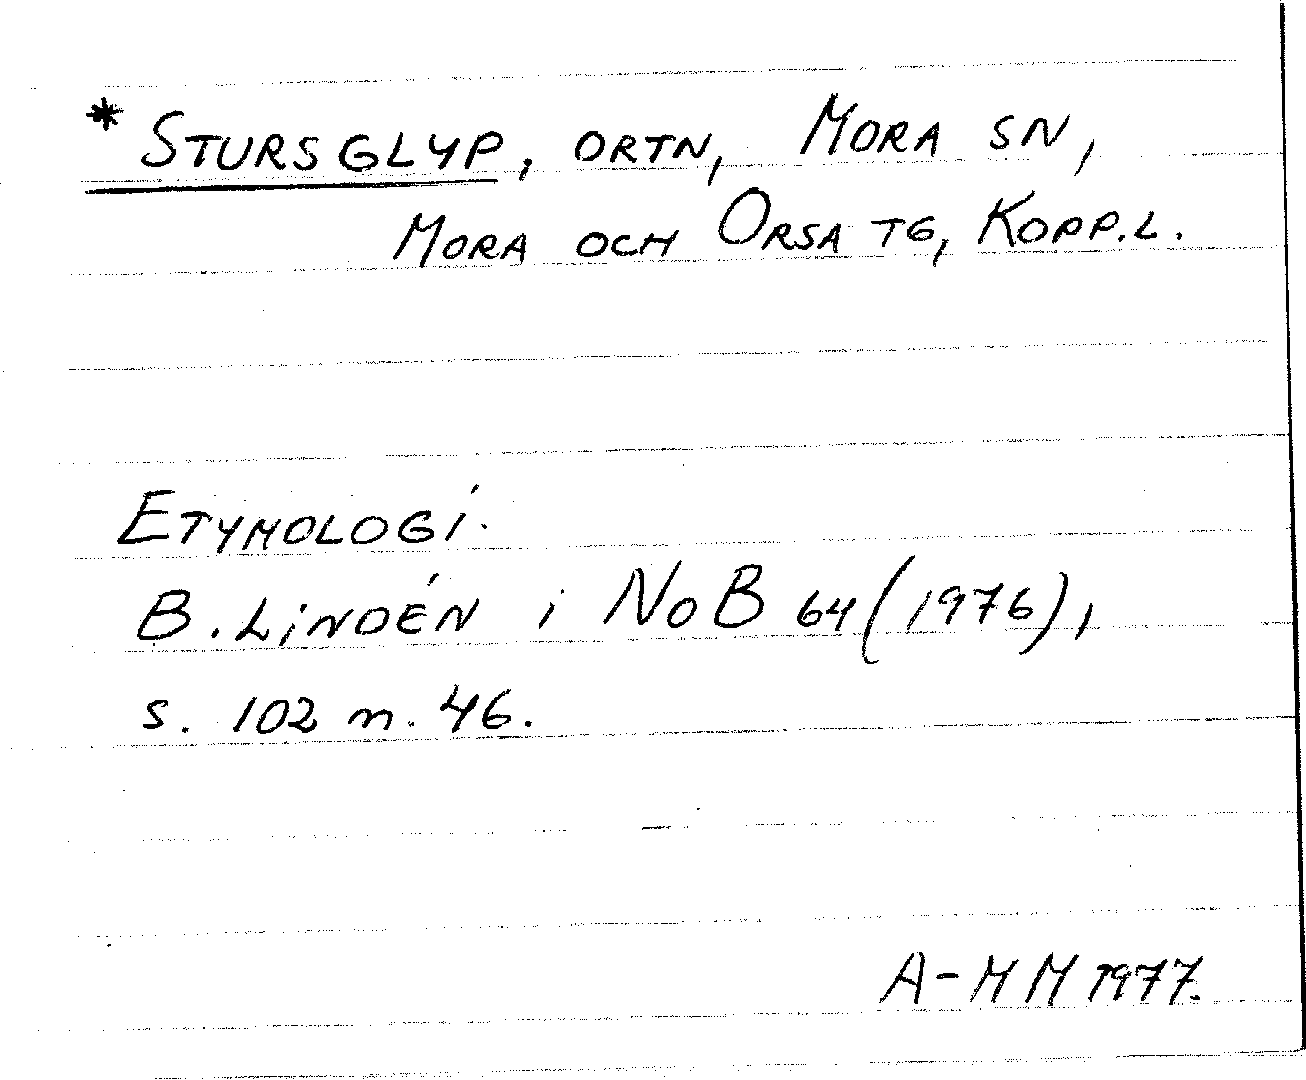 * STURSGLYP, ORTN, MORA SN,
MORA OCH ORSA TG, KOPP.L.
ETYMOLOGI.
B. LINDÉN i NoB 64 (1976),
s. 102 n. 46.
A-MM 1977.